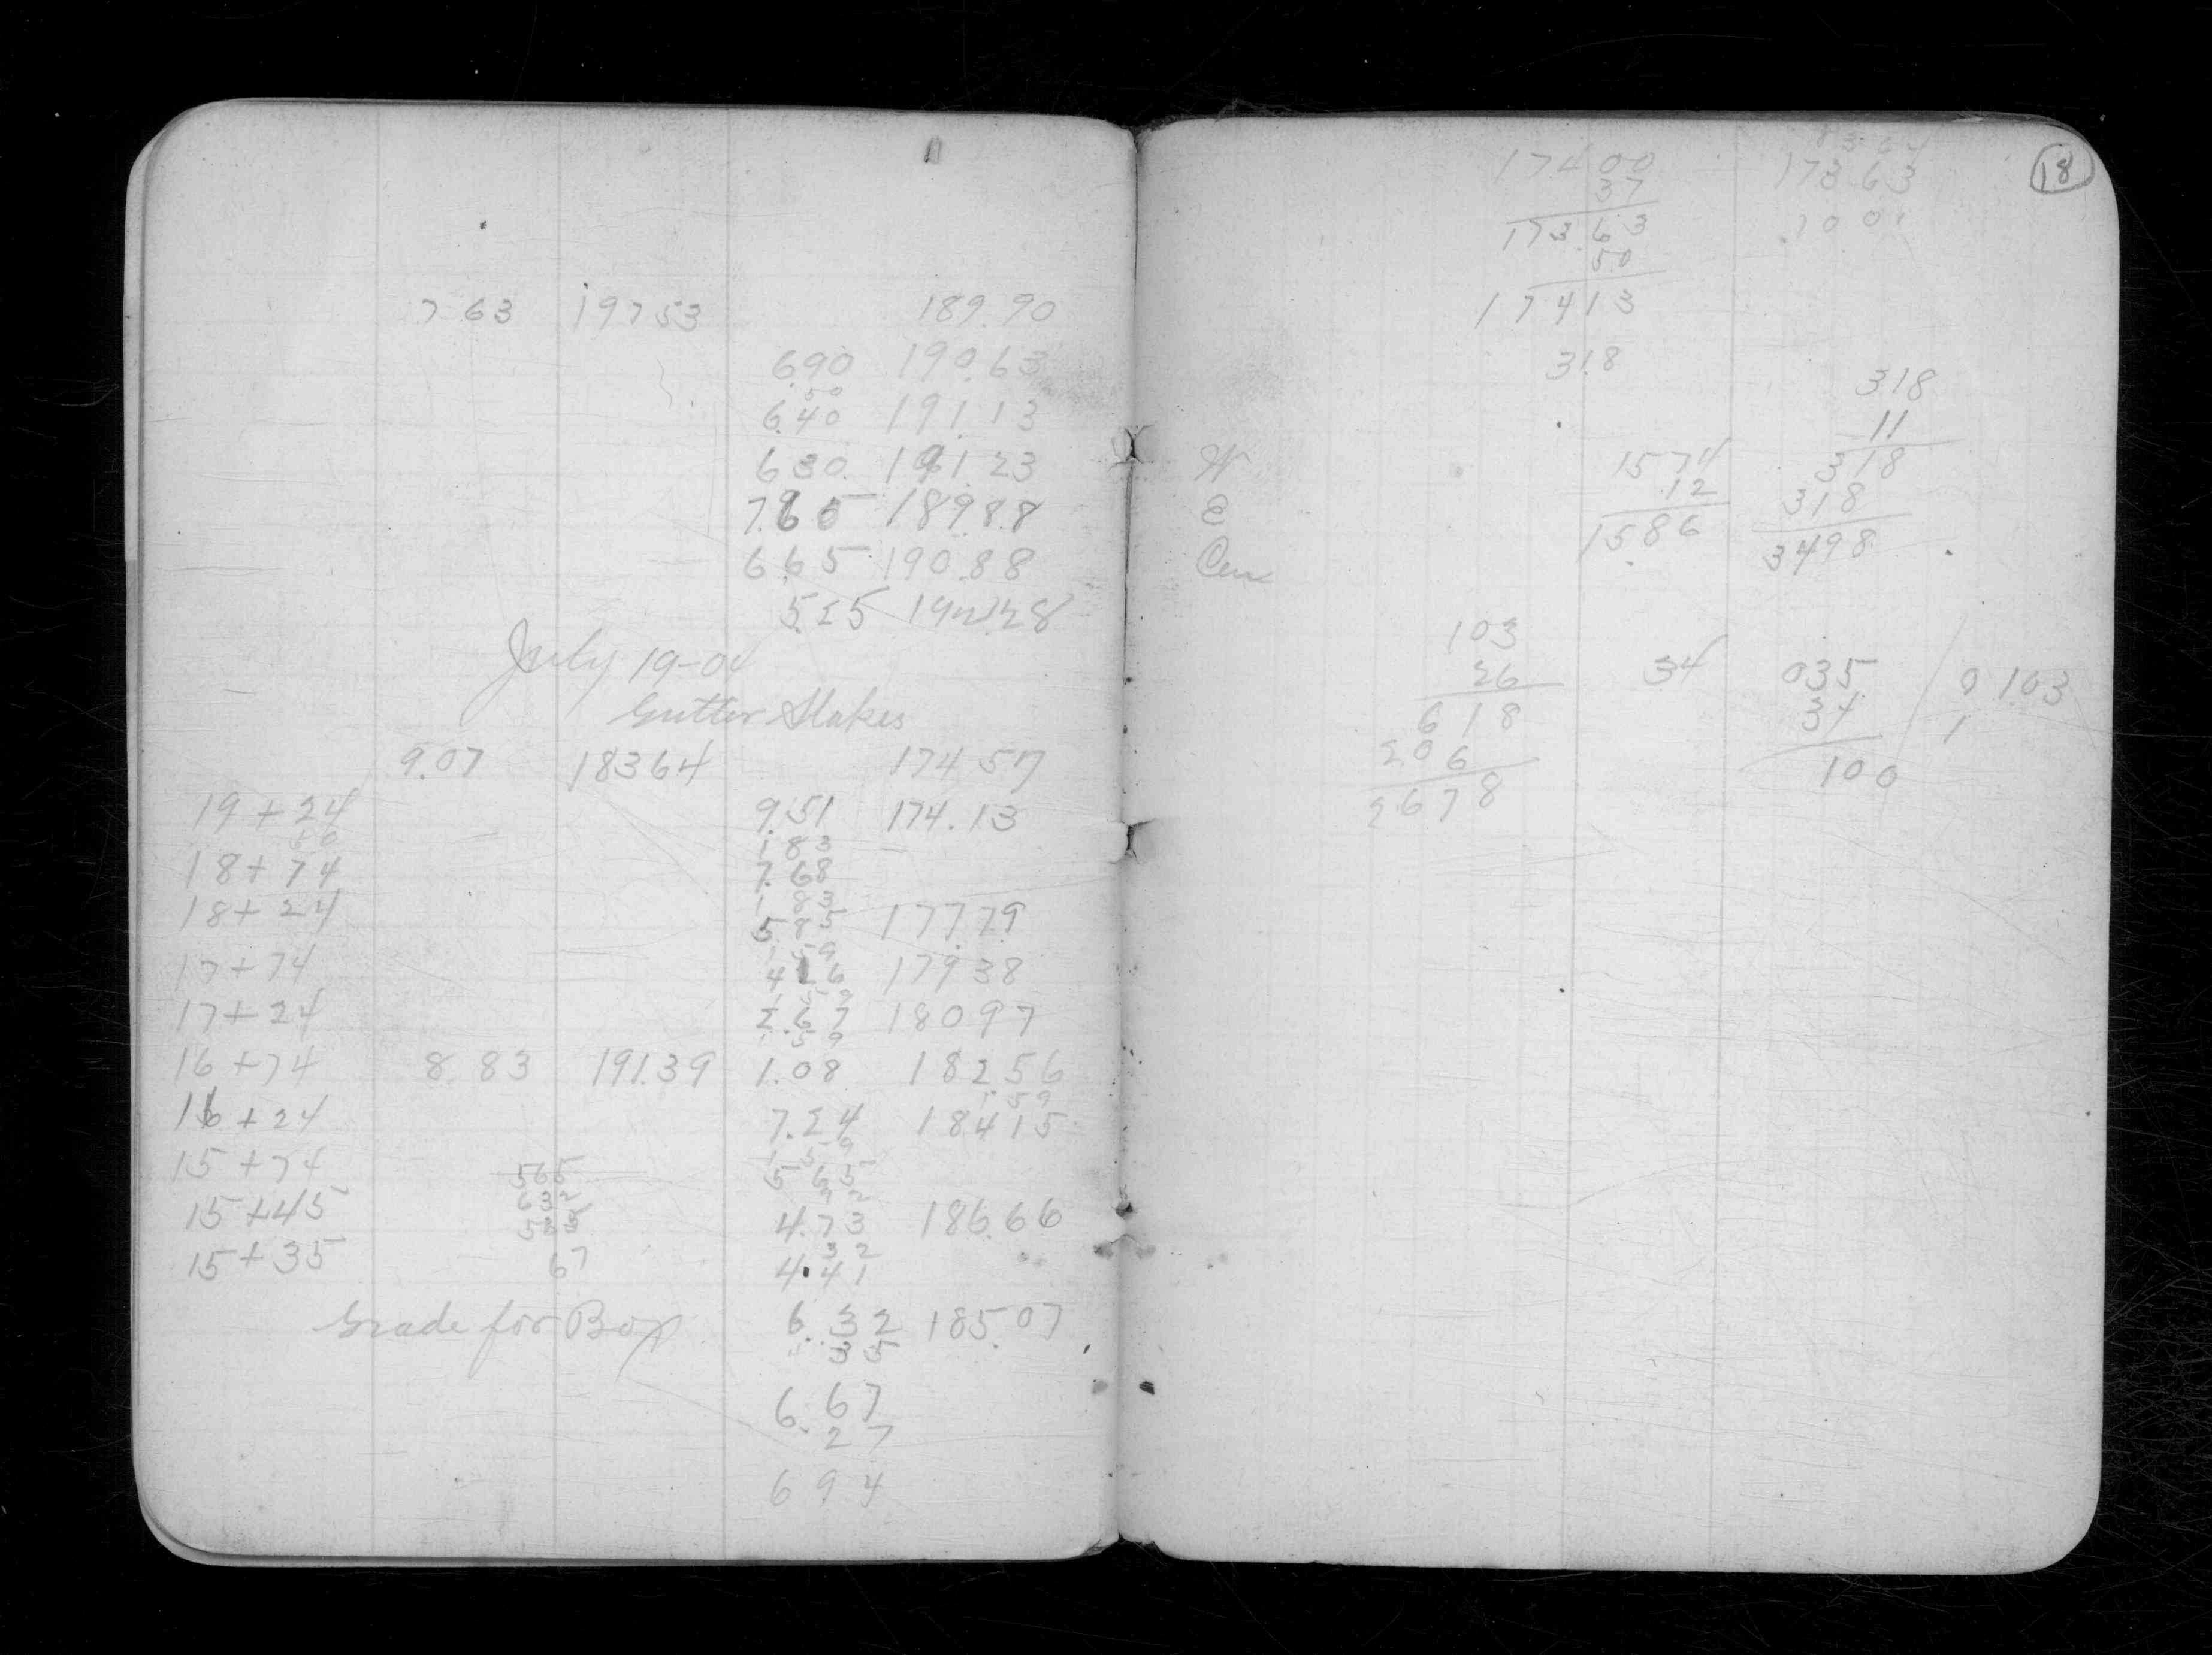 7 63 197 53 189.90
6.90 190.63
50
6.40 191.13
6 30 191 23
7.65 189 88
6.65 190.88
5.25 192.28
July 19-04
Gutter Stakes
9.07 183 64 174 57
19 + 24 9.51 174.13
50 1 83
18 + 74 7.68
1 83
18 + 24 5 85 177.79
1 59
17 + 74 4 26 179 38
1 59
17 + 24 2.67 180 97
1 59
16 + 74 8.83 191.39 1.08 182 56
1 59
16 + 24 7.24 184 15
1 59
15 + 74 565 5 65
632 92
15 + 45 4.73 186.66
67 32
15 + 35 4.41
Grade for Box 6.32 185.07
35
6.67
27
6 94
18
174 00 173 63
37 10 01
173.63
50
174 13
3.18
318
11
W 1574 318
.12 318
E 1586 3498
Cen
103
26 34 035 0 103
618 34 1
206 100
2678